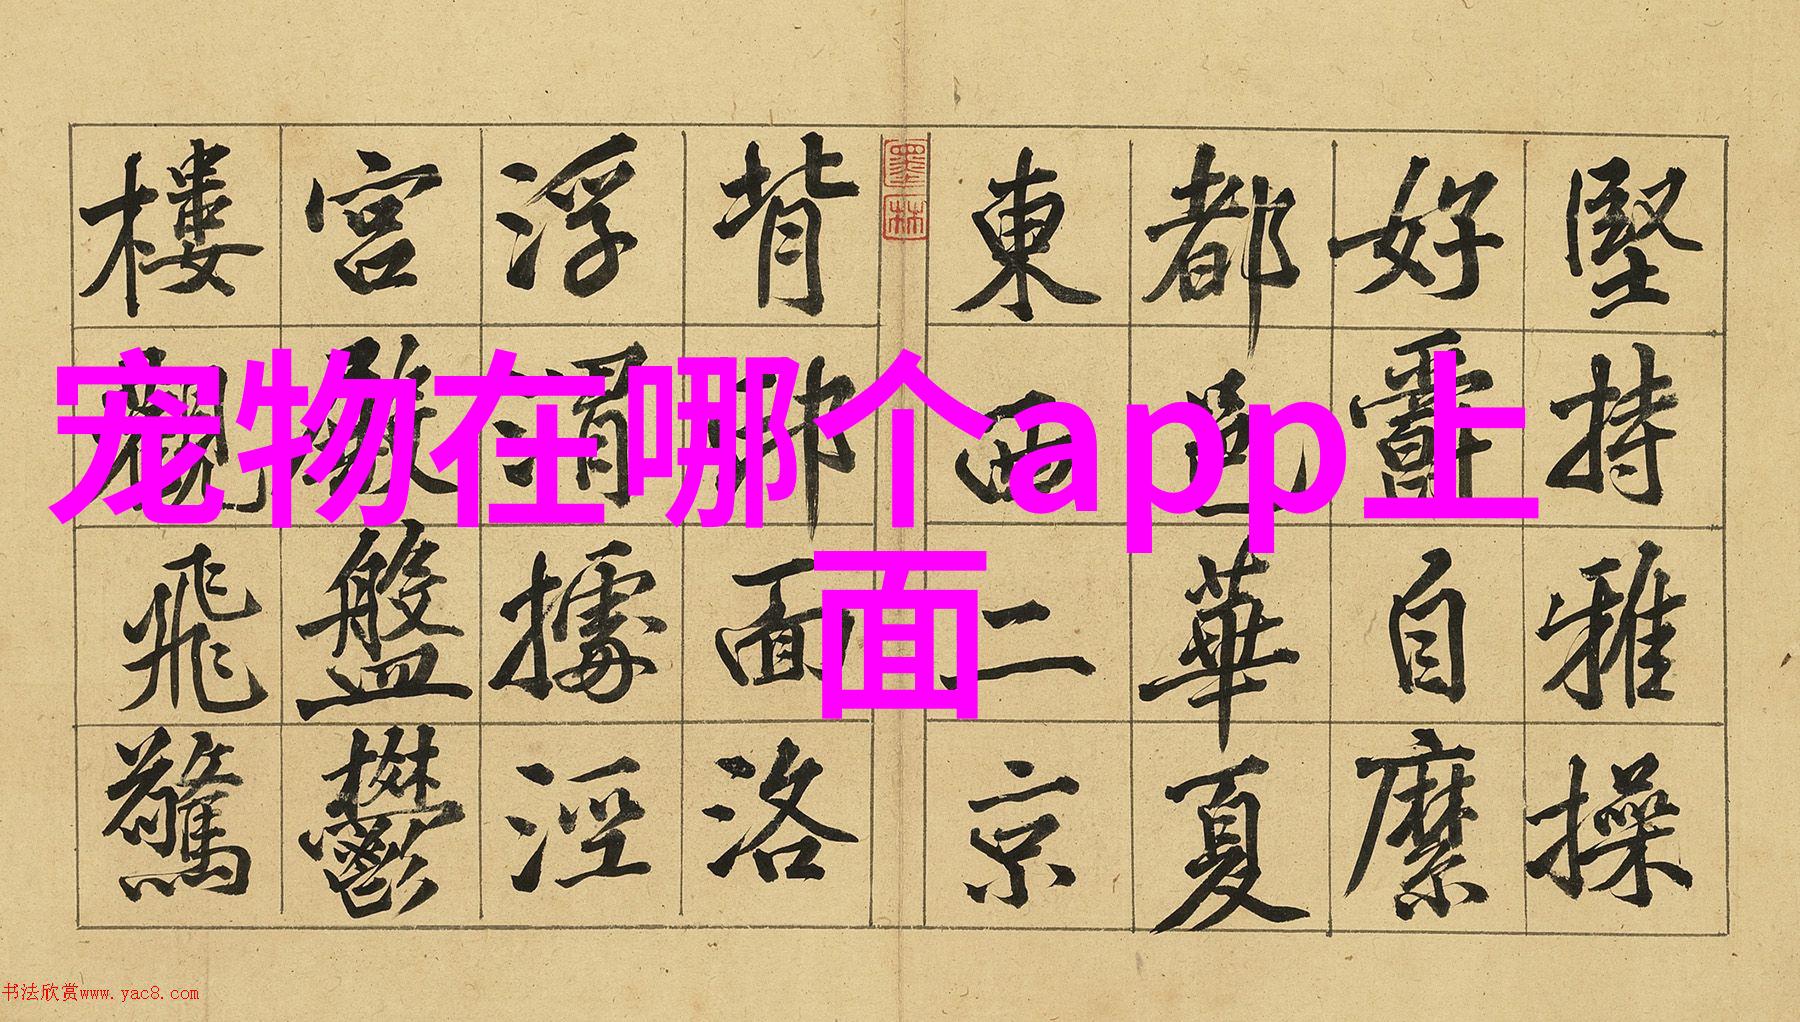 宠物在哪个app上
面
堅持雅操
好爵自縻
都邑華夏
東西二京
墨林
背邙面洛
浮渭據涇
宮殿盤鬱
樓觀飛驚
书法欣赏www.yac8.com